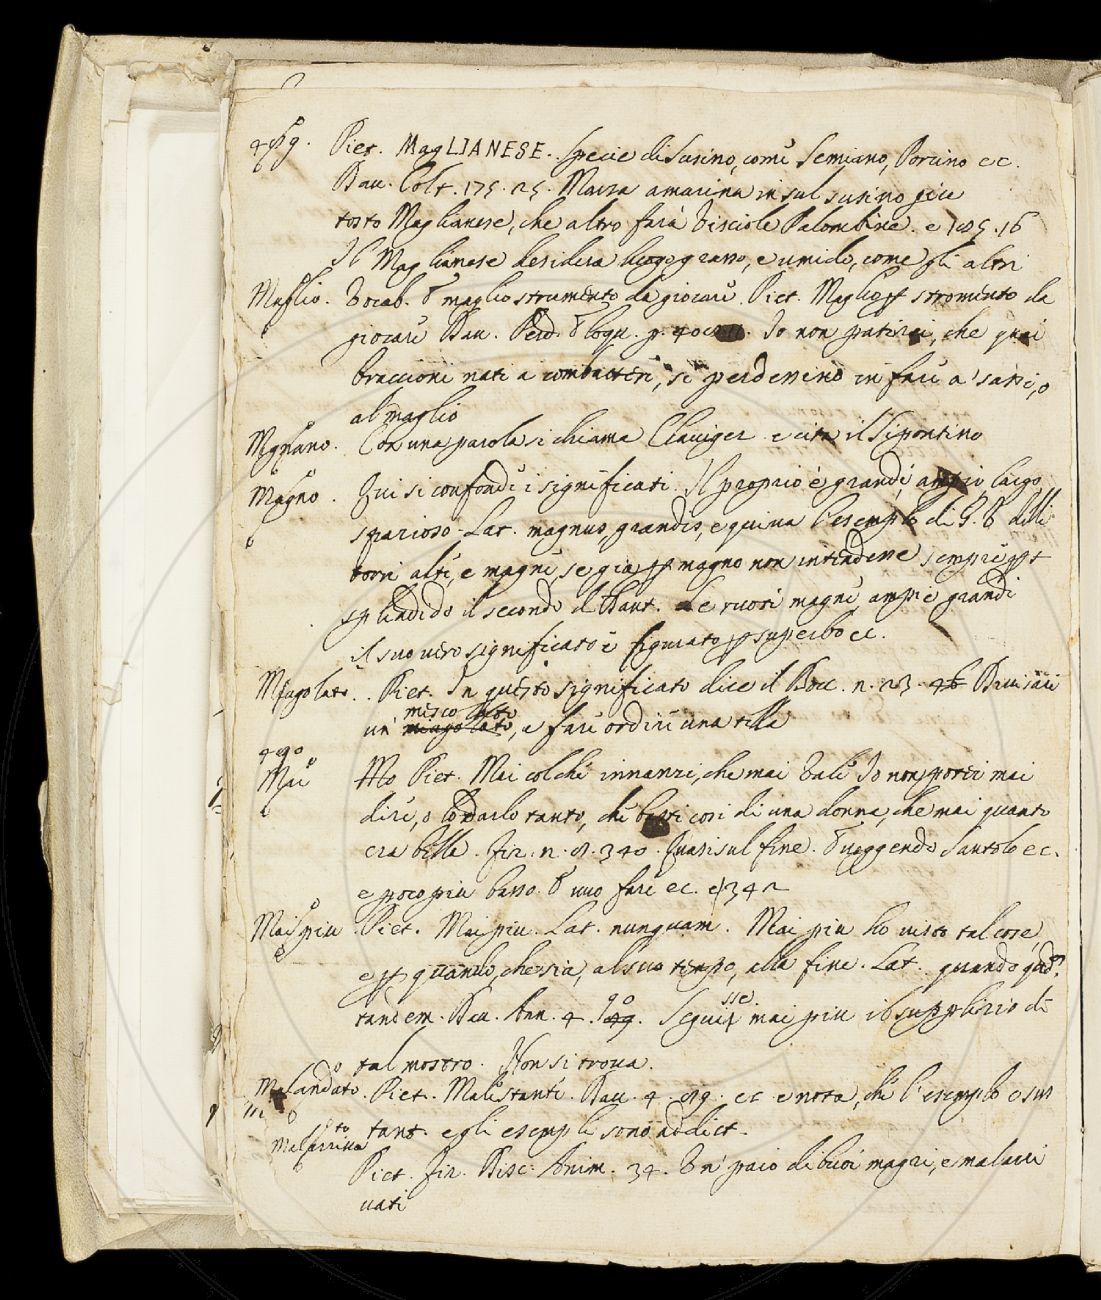 Piet. MagLIANESE. Specie di Susino, come Semiano, Porcino ec.
Dav. Colt. 175. 25. Marza amarina in sul susino piu
tosto Maglianese, che altro farà Visciole Palombine. e 185. 16
Il Maglianese desidera luogo grasso, e umido, come gli altri
Maglio. Vocab. maglio strumento da giocare. Piet. Maglio stromento da
giocare Dav. Perd. Eloqu. p. Io non patirei, che quei
braccioni nati a combattere, si perdessino in fare a' sassi, o
al maglio
Magnano. Con una parola si chiama Claviger e cita il Sipontino
Magno. Qui si confonde i significati. Il proprio è grande, ampio largo
spazioso. Lat. magnus, grandis, e quiva l'esemplo di G. V. delle
torri alte, e magne, se già magno non intendesse sempre
splendido il secondo d Dant. e ruote magne, ampie grandi
il suo vero significato è figurato superbo ec.
Miagolato. Piet. In questo significato dice il Bocc. n. 23. Divisare
un miscolato, e fare ordire una tela
Mai Piet. Mai colchè innanzi, che mai Vale Io non potei mai
dire, o lodarlo tanto, che basti cosi di una donna, che mai quanto
era bella. fir. n. 340. Quasi sul fine. veggendo Santolo ec.
e poco piu basso. vuo fare ec. 342
Mai piu Piet. Mai piu. Lat. nunquam. Mai piu ho visto tal cose
e quando, che sia, al suo tempo, alla fine. Lat. quando
tandem. Dav. Ann. 4. 90. Seguisse mai piu il supplizio di
tal mostro. Non si trova.
Malandato. Piet. Malestante. Dav. 4. ec e nota, che l'esemplo è sus
tant. e gli esempli sono addiet.
Piet. fir. Disc. Anim. 34. Un paio di buoi magri, e malarri
vati